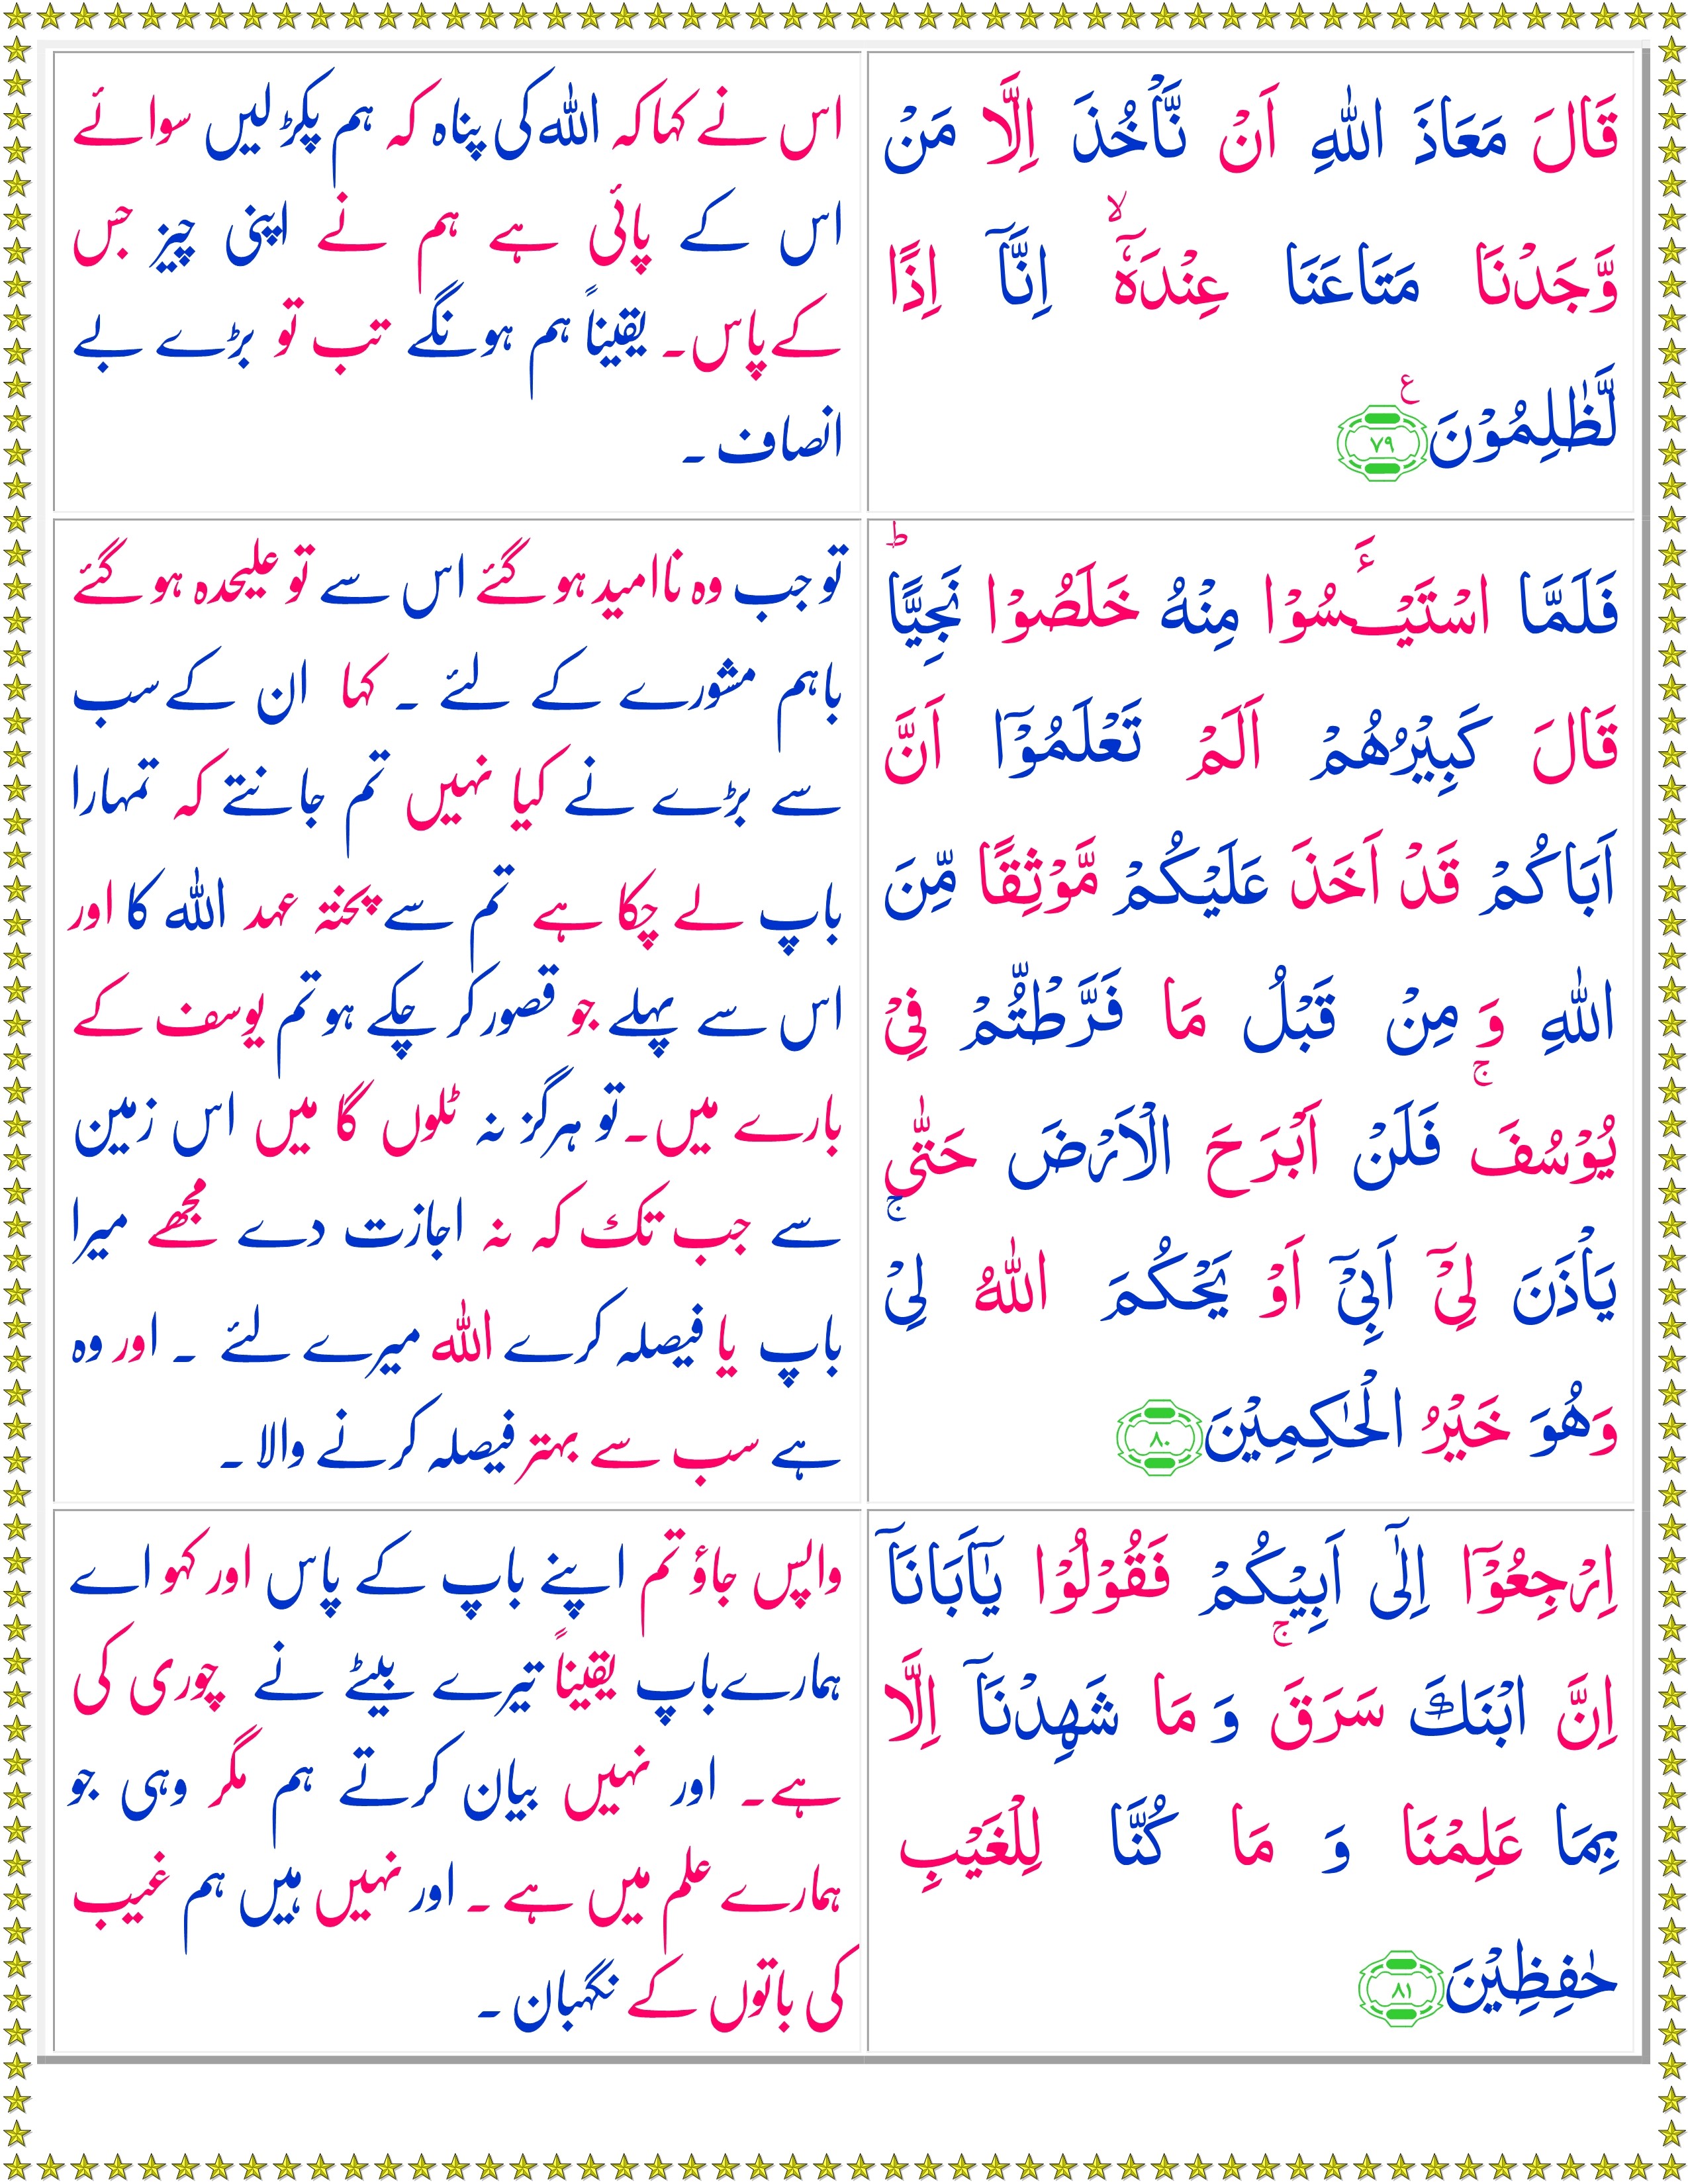 قَالَ مَعَاذَ اللّٰهِ اَنْ نَّاْخُذَ اِلَّا مَنْ
وَّجَدْنَا مَتَاعَنَا عِنْدَهٗۤ ۙ اِنَّاۤ اِذًا
لَّظٰلِمُوْنَ ع ۷۹
اس نے کہا کہ اللہ کی پناہ کہ ہم پکڑ لیں سوائے
اس کے پائی ہے ہم نے اپنی چیز جس
کے پاس۔ یقیناً ہم ہونگے تب تو بڑے بے
انصاف۔
فَلَمَّا اسْتَيْـَٔسُوْا مِنْهُ خَلَصُوْا نَجِيًّا ؕ
قَالَ كَبِيْرُهُمْ اَلَمْ تَعْلَمُوْۤا اَنَّ
اَبَاكُمْ قَدْ اَخَذَ عَلَيْكُمْ مَّوْثِقًا مِّنَ
اللّٰهِ وَ مِنْ قَبْلُ مَا فَرَّطْتُّمْ فِيْ
يُوْسُفَ ۚ فَلَنْ اَبْرَحَ الْاَرْضَ حَتّٰى
يَاْذَنَ لِيْۤ اَبِيْۤ اَوْ يَحْكُمَ اللّٰهُ لِيْ ۚ
وَهُوَ خَيْرُ الْحٰكِمِيْنَ ۸۰
تو جب وہ ناامید ہو گئے اس سے تو علیحدہ ہو گئے
باہم مشورے کے لئے ۔ کہا ان کے سب
سے بڑے نے کیا نہیں تم جانتے کہ تمہارا
باپ لے چکا ہے تم سے پختہ عہد اللہ کا اور
اس سے پہلے جو قصور کر چکے ہو تم یوسف کے
بارے میں۔ تو ہرگز نہ ٹلوں گا میں اس زمین
سے جب تک کہ نہ اجازت دے مجھے میرا
باپ یا فیصلہ کرے اللہ میرے لئے ۔ اور وہ
ہے سب سے بہتر فیصلہ کرنے والا۔
اِرْجِعُوْۤا اِلٰۤى اَبِيْكُمْ فَقُوْلُوْا يٰۤاَبَانَاۤ
اِنَّ ابْنَكَ سَرَقَ ۚ وَ مَا شَهِدْنَاۤ اِلَّا
بِمَا عَلِمْنَا وَ مَا كُنَّا لِلْغَيْبِ
حٰفِظِيْنَ ۸۱
واپس جاؤ تم اپنے باپ کے پاس اور کہو اے
ہمارے باپ یقیناً تیرے بیٹے نے چوری کی
ہے۔ اور نہیں بیان کرتے ہم مگر وہی جو
ہمارے علم میں ہے۔ اور نہیں ہیں ہم غیب
کی باتوں کے نگہبان۔